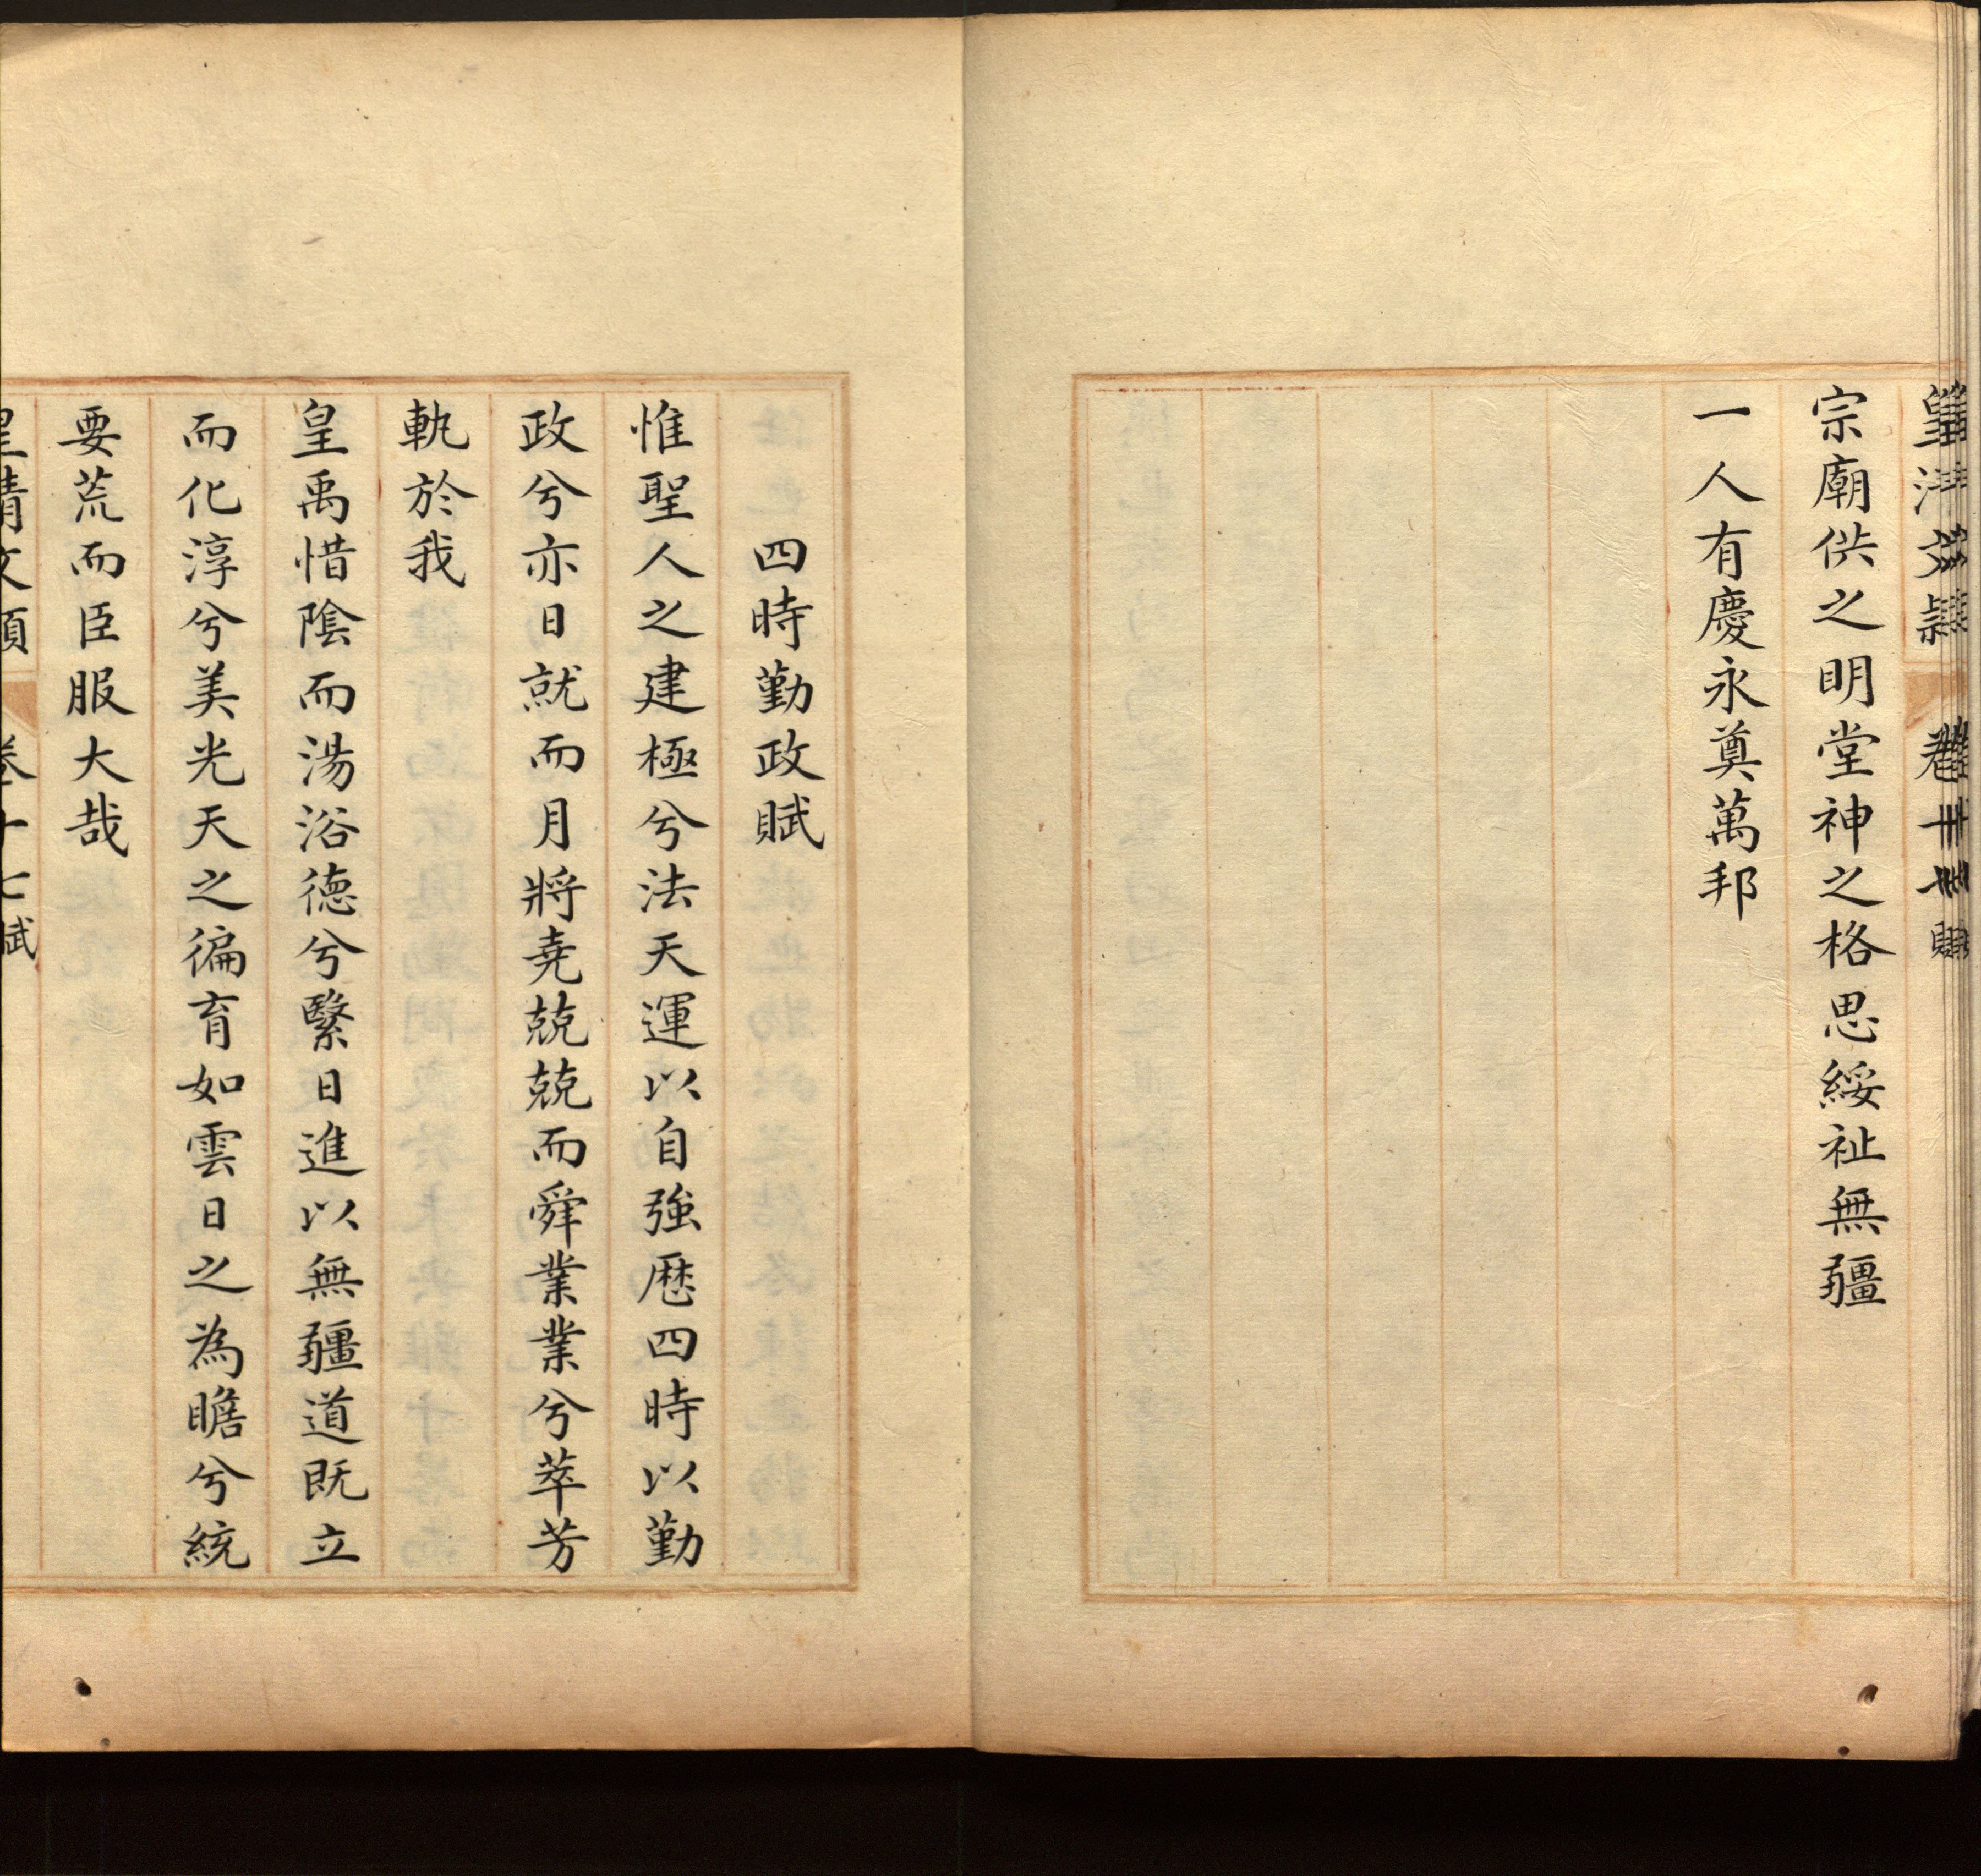 宗廟供之明堂神之格思綏祉無疆
一人有慶永奠萬邦
四時勤政賦
惟聖人之建極兮法天運以自強歷四時以勤
政兮亦日就而月將堯兢兢而舜業業兮萃芳
執於我
皇禹惜陰而湯浴德兮繄日進以無疆道既立
而化淳兮美光天之徧育如雲日之為瞻兮統
要荒而臣服大哉
皇清文穎 卷十七賦